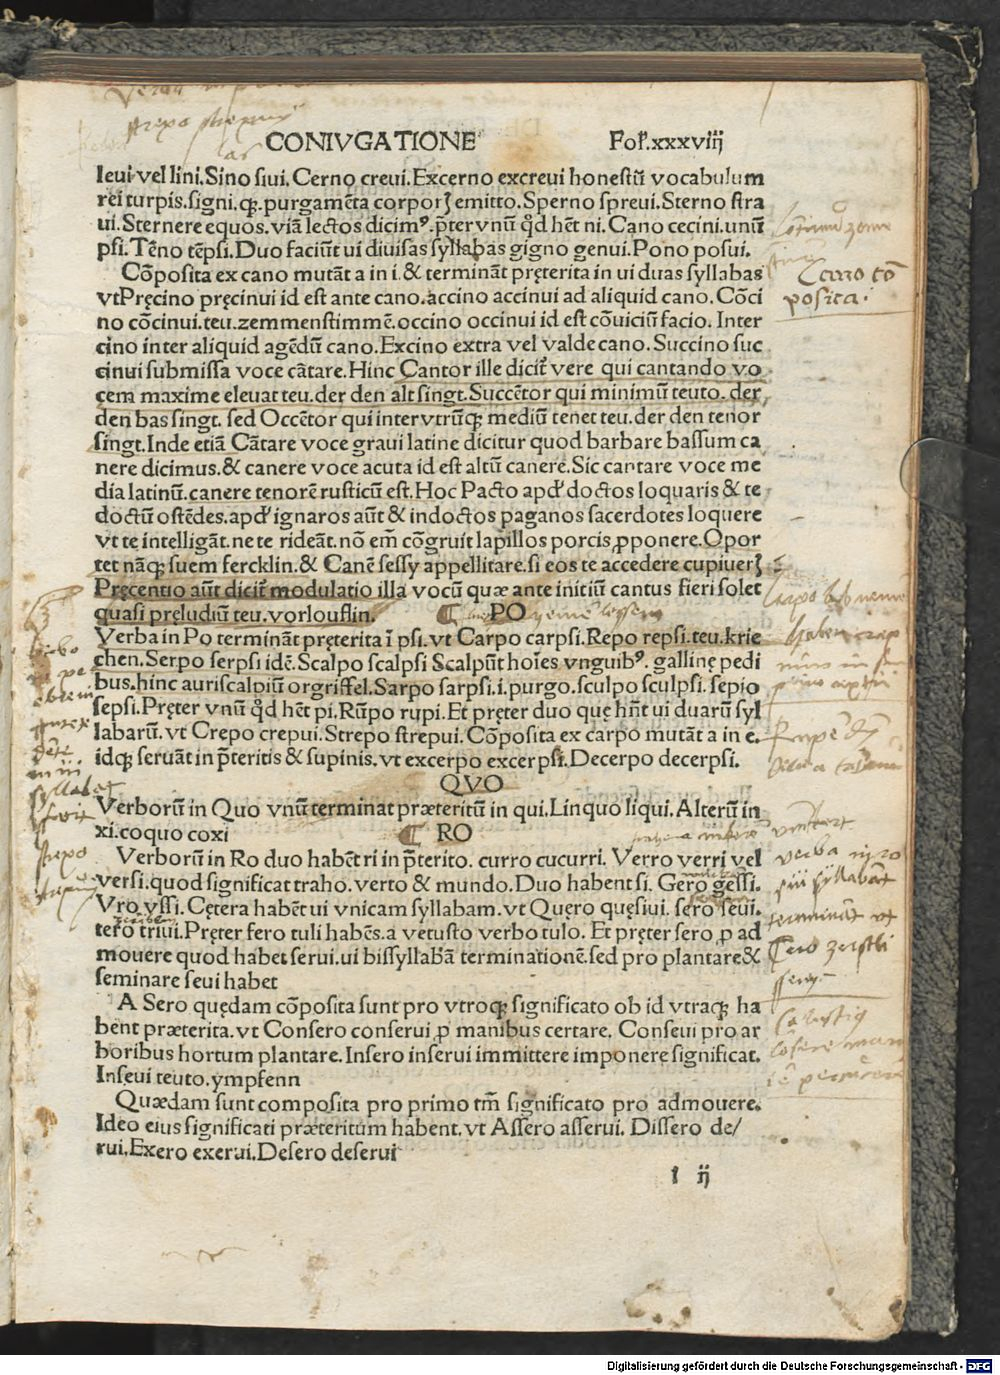 CONIVGATIONE Fol.xxxviij
leui vel lini. Sino siui. Cerno creui. Excerno excreui honestũ vocabulum
rei turpis. signi. qꝫ. purgamẽta corporꝫ emitto. Sperno spreui. Sterno stra
ui. Sternere equos. viã lectos dicimꝰ. p̃ter vnũ qd̓ hẽt ni. Cano cecini. unũ
psi. Tẽno tẽpsi. Duo faciũt ui diuisas syllabas gigno genui. Pono posui.
Cõposita ex cano mutãt a in i. & terminãt pręterita in ui duas syllabas
vt Pręcino pręcinui id est ante cano. accino accinui ad aliquid cano. Cõci
no cõcinui. teu. zemmenstimmẽ. occino occinui id est cõuiciũ facio. Inter
cino inter aliquid agẽdũ cano. Excino extra vel valde cano. Succino suc
cinui submissa voce cãtare. Hinc Cantor ille dicit̃ vere qui cantando vo
cem maxime eleuat teu. der den alt singt. Succẽtor qui minimũ teuto. der
den bas singt. sed Occẽtor qui inter vtrũqꝫ mediũ tenet teu. der den tenor
singt. Inde etiã Cãtare voce graui latine dicitur quod barbare bassum ca
nere dicimus. & canere voce acuta id est altũ canere. Sic cantare voce me
dia latinũ. canere tenorẽ rusticũ est. Hoc Pacto apd̓ doctos loquaris & te
doctũ ostẽdes. apd̓ ignaros aũt & indoctos paganos sacerdotes loquere
vt te intelligãt. ne te rideãt. nõ em̃ cõgruit lapillos porcis ꝓponere. Opor
tet nãqꝫ suem fercklin. & Canẽ sessy appellitare. si eos te accedere cupiuerꝫ
Pręcentio aũt dicit̃ modulatio illa vocũ quæ ante initiũ cantus fieri solet
quasi pręludiũ teu. vorlouflin. ¶ PO
Verba in Po terminãt pręterita ĩ psi. vt Carpo carpsi. Repo repsi. teu. krie
chen. Serpo serpsi idẽ. Scalpo scalpsi Scalpũt hoĩes vnguibꝰ. gallinę pedi
bus. hinc auriscalpiũ orgriffel. Sarpo sarpsi. i. purgo. sculpo sculpsi. sepio
sepsi. Pręter vnũ qd̓ hẽt pi. Rũpo rupi. Et pręter duo quę hñt ui duarũ syl
labarũ. vt Crepo crepui. Strepo strepui. Cõposita ex carpo mutãt a in e.
idqꝫ seruãt in p̃teritis & supinis. vt excerpo excerpsi. Decerpo decerpsi.
QVO
Verborũ in Quo vnũ terminat præteritũ in qui. Linquo liqui. Alterũ in
xi. coquo coxi ¶ RO
Verborũ in Ro duo habẽt ri in p̃terito. curro cucurri. Verro verri vel
versi. quod significat traho. verto & mundo. Duo habent si. Gero gessi.
Vro vssi. Cętera habẽt ui vnicam syllabam. vt Quęro quęsiui. sero seui.
tero triui. Pręter fero tuli habẽs. a vetusto verbo tulo. Et pręter sero ꝓ ad
mouere quod habet serui. ui bissyllabã terminationẽ. sed pro plantare &
seminare seui habet
A Sero quędam cõposita sunt pro vtroqꝫ significato ob id vtraqꝫ ha
bent præterita. vt Consero conserui ꝓ manibus certare. Conseui pro ar
boribus hortum plantare. Insero inserui immittere imponere significat.
Inseui teuto. ympfenn
Quædam sunt composita pro primo tm̃ significato pro admouere.
Ideo eius significati præteritum habent. vt Assero asserui. Dissero de/
rui. Exero exerui. Desero deserui
l ij
Digitalisierung gefördert durch die Deutsche Forschungsgemeinschaft - DFG